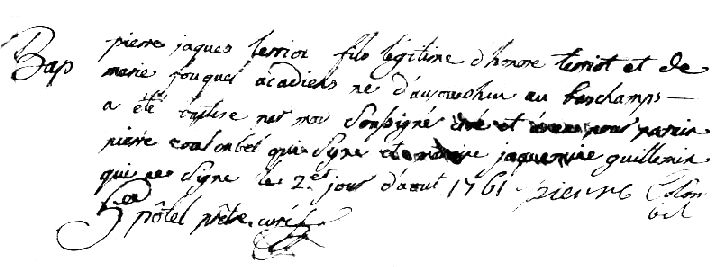 Bap pierre jaques terriot fils legitime d'honore terriot et de
marie fouquet acadiens ne d'aujourdhui au boschamps
a été batisé par moi soussigné et pour parein
pierre colombel qui signe et jaquemine guillemin
qui ne signe les 2e jour d'aout 1761 pierre Colom
bel
prêtre curé